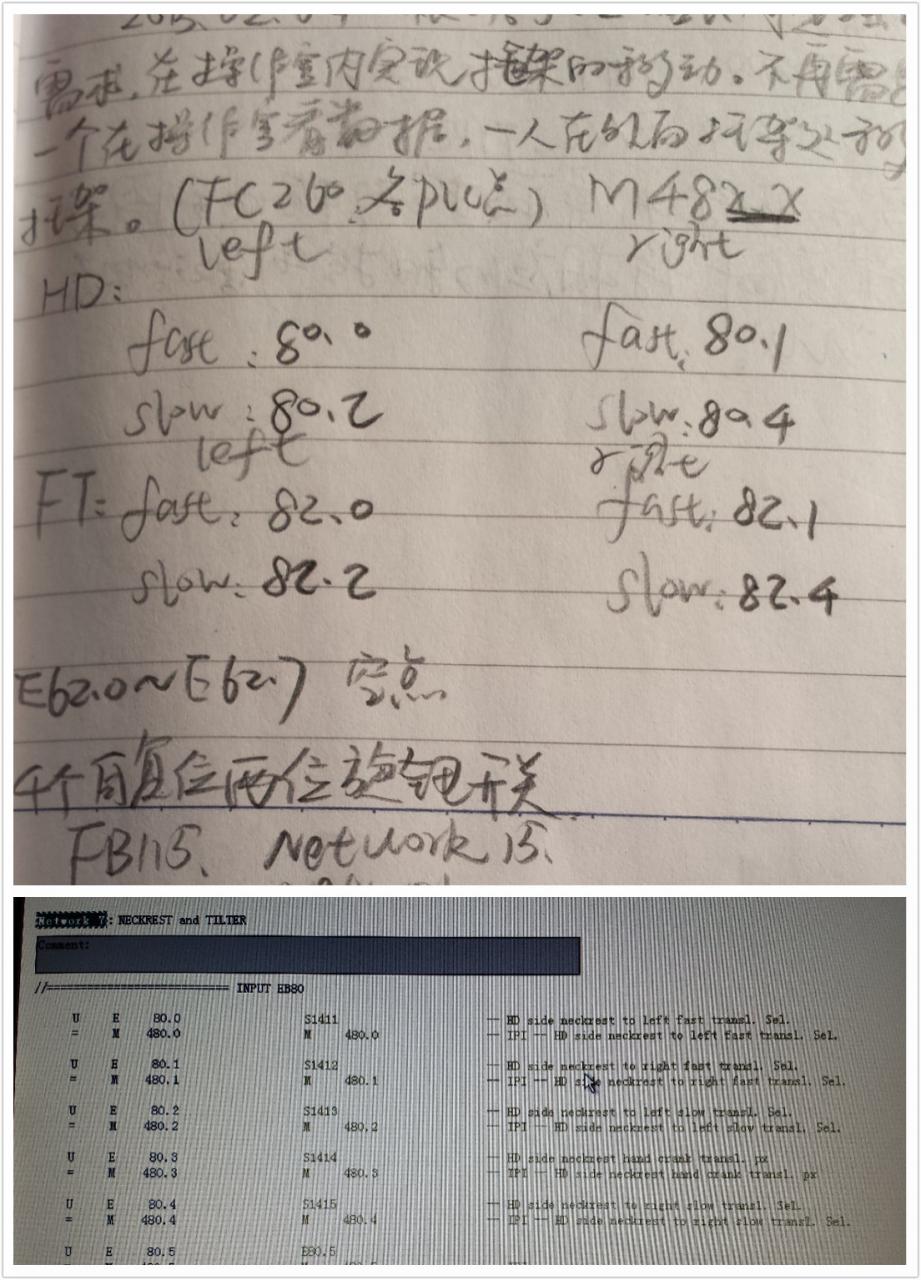 需求,在操作室内实现托架的移动。不再需
一个在操作室看数据,一人在外面托架处
托架。(FC260,各PLC点) M48x.x
left right
HD:
fast: 80.0 fast: 80.1
slow: 80.2 slow: 80.4
left right
FT: fast: 82.0 fast: 82.1
slow: 82.2 slow: 82.4
E62.0~E62.7 空点
4个自复位两位旋钮开关
FB115、 Network 15.
Network 7: NECKREST and TILTER
Comment:
//========================== INPUT EB80
U E 80.0 S1411 -- HD side neckrest to left fast transl. Sel.
= M 480.0 M 480.0 -- IPI -- HD side neckrest to left fast transl. Sel.
U E 80.1 S1412 -- HD side neckrest to right fast transl. Sel.
= M 480.1 M 480.1 -- IPI -- HD side neckrest to right fast transl. Sel.
U E 80.2 S1413 -- HD side neckrest to left slow transl. Sel.
= M 480.2 M 480.2 -- IPI -- HD side neckrest to left slow transl. Sel.
U E 80.3 S1414 -- HD side neckrest hand crank transl. px
= M 480.3 M 480.3 -- IPI -- HD side neckrest hand crank transl. px
U E 80.4 S1415 -- HD side neckrest to right slow transl. Sel.
= M 480.4 M 480.4 -- IPI -- HD side neckrest to right slow transl. Sel.
U E 80.5 E80.5